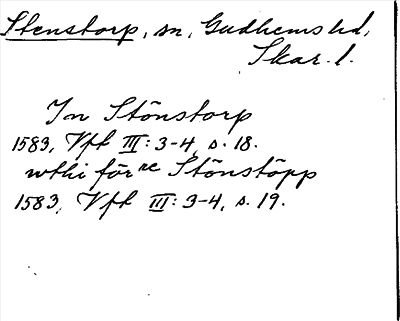 Stenstorp, sn, Gudhems hd,
Skar. l.
In Stönstorp
1583, Vft III: 3-4, s. 18.
wthi förne Stönstöpp
1583, Vft III: 3-4, s. 19.